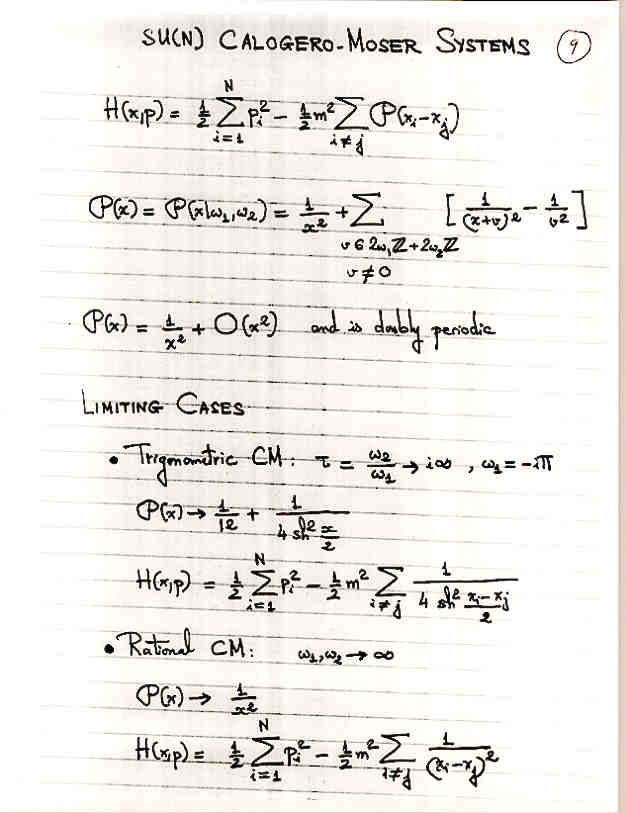 SU(N) CALOGERO-MOSER SYSTEMS 9
H(x,p) = 1/2 ∑_{i=1}^{N} p_i^2 - 1/2 m^2 ∑_{i≠j} ℘(x_i - x_j)
℘(x) = ℘(x|ω_1,ω_2) = 1/x^2 + ∑_{v∈2ω_1ℤ+2ω_2ℤ, v≠0} [1/(x+v)^2 - 1/v^2]
℘(x) = 1/x^2 + O(x^2) and is doubly periodic
LIMITING CASES
• Trigonometric CM: τ = ω_2/ω_1 → i∞, ω_1 = -iπ
℘(x) → 1/12 + 1/(4 sh^2 x/2)
H(x,p) = 1/2 ∑_{i=1}^{N} p_i^2 - 1/2 m^2 ∑_{i≠j} 1/(4 sh^2 (x_i-x_j)/2)
• Rational CM: ω_1,ω_2 → ∞
℘(x) → 1/x^2
H(x,p) = 1/2 ∑_{i=1}^{N} p_i^2 - 1/2 m^2 ∑_{i≠j} 1/(x_i-x_j)^2